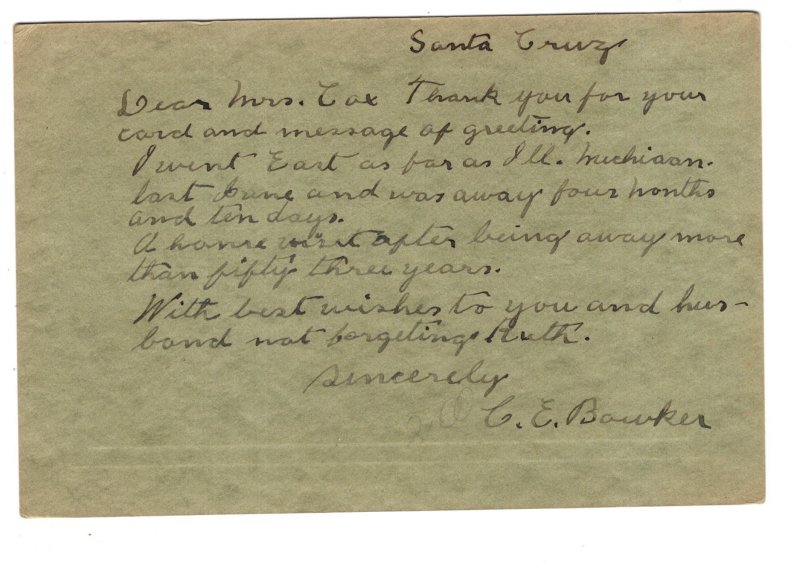 Santa Cruz
Dear Mrs. Cox Thank you for your
card and message of greeting.
I went East as far as Ill. Michigan.
last June and was away four months
and ten days.
A home visit after being away more
than fifty three years.
With best wishes to you and hus-
band not forgeting Ruth.
Sincerely
C. E. Bowker